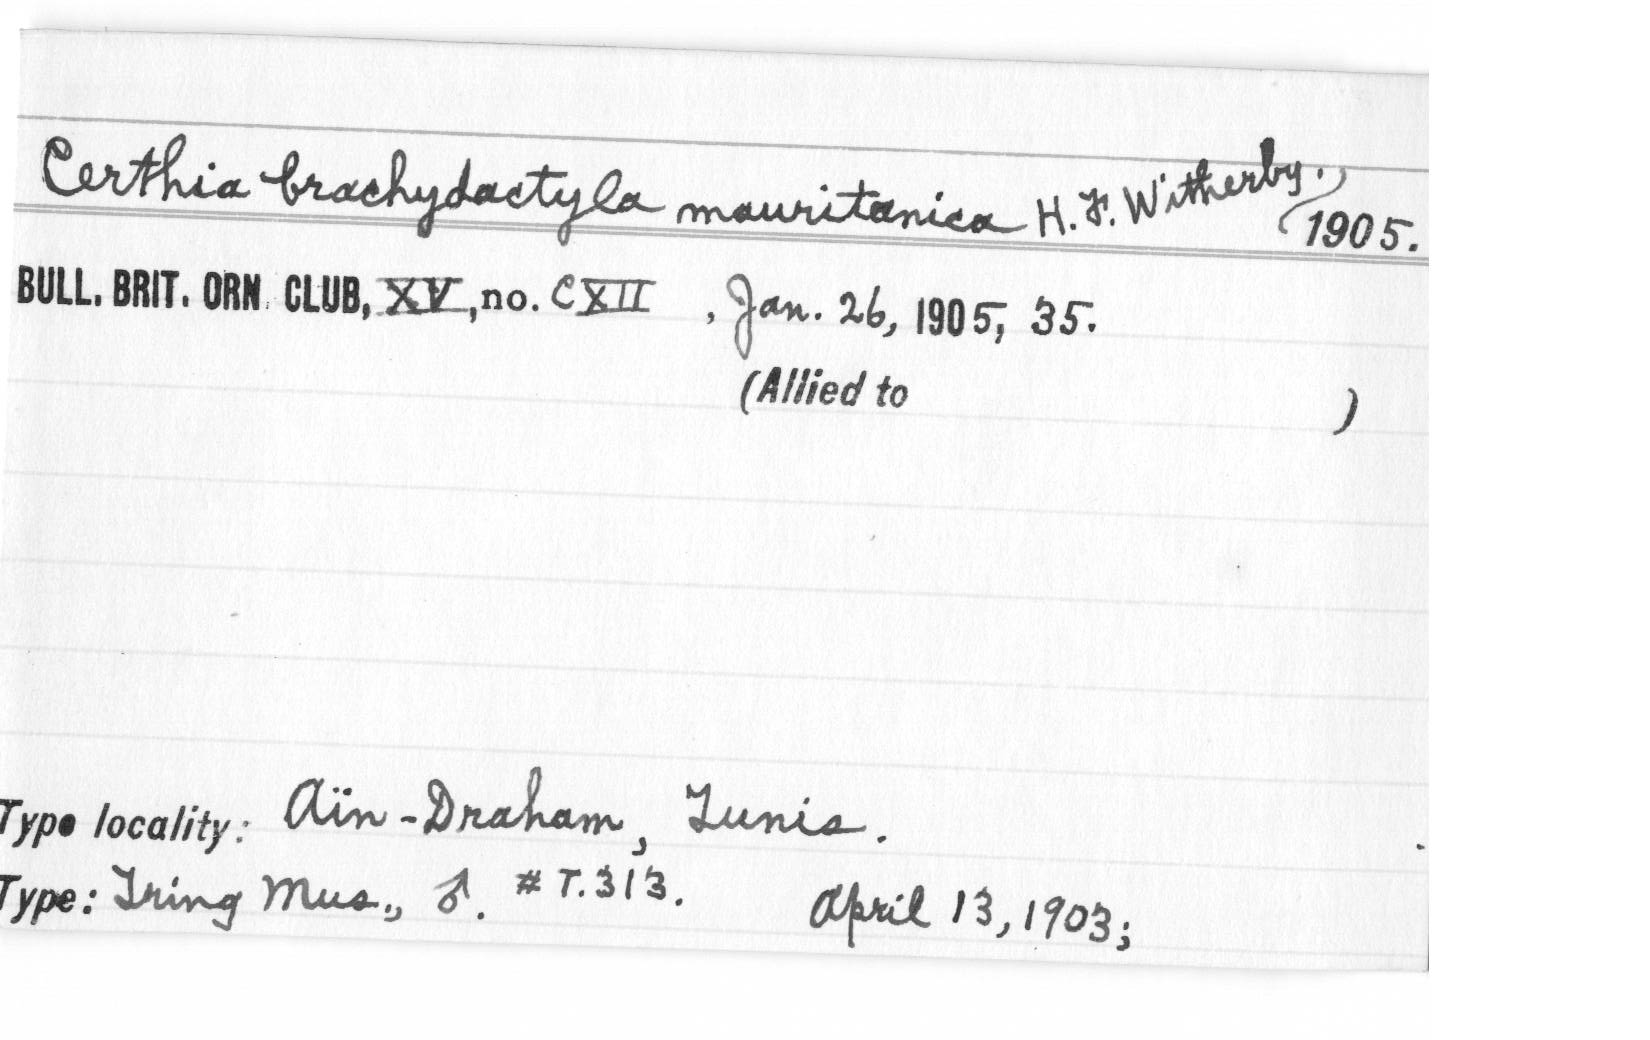 Certhia brachydactyla mauritanica H. F. Witherby.,
1905.
BULL. BRIT. ORN. CLUB, XV, no. CXII , Jan. 26, 1905, 35.
(Allied to )
Type locality: Aïn-Draham, Tunis.
Type: Tring Mus., ♂. # T.313. April 13, 1903;